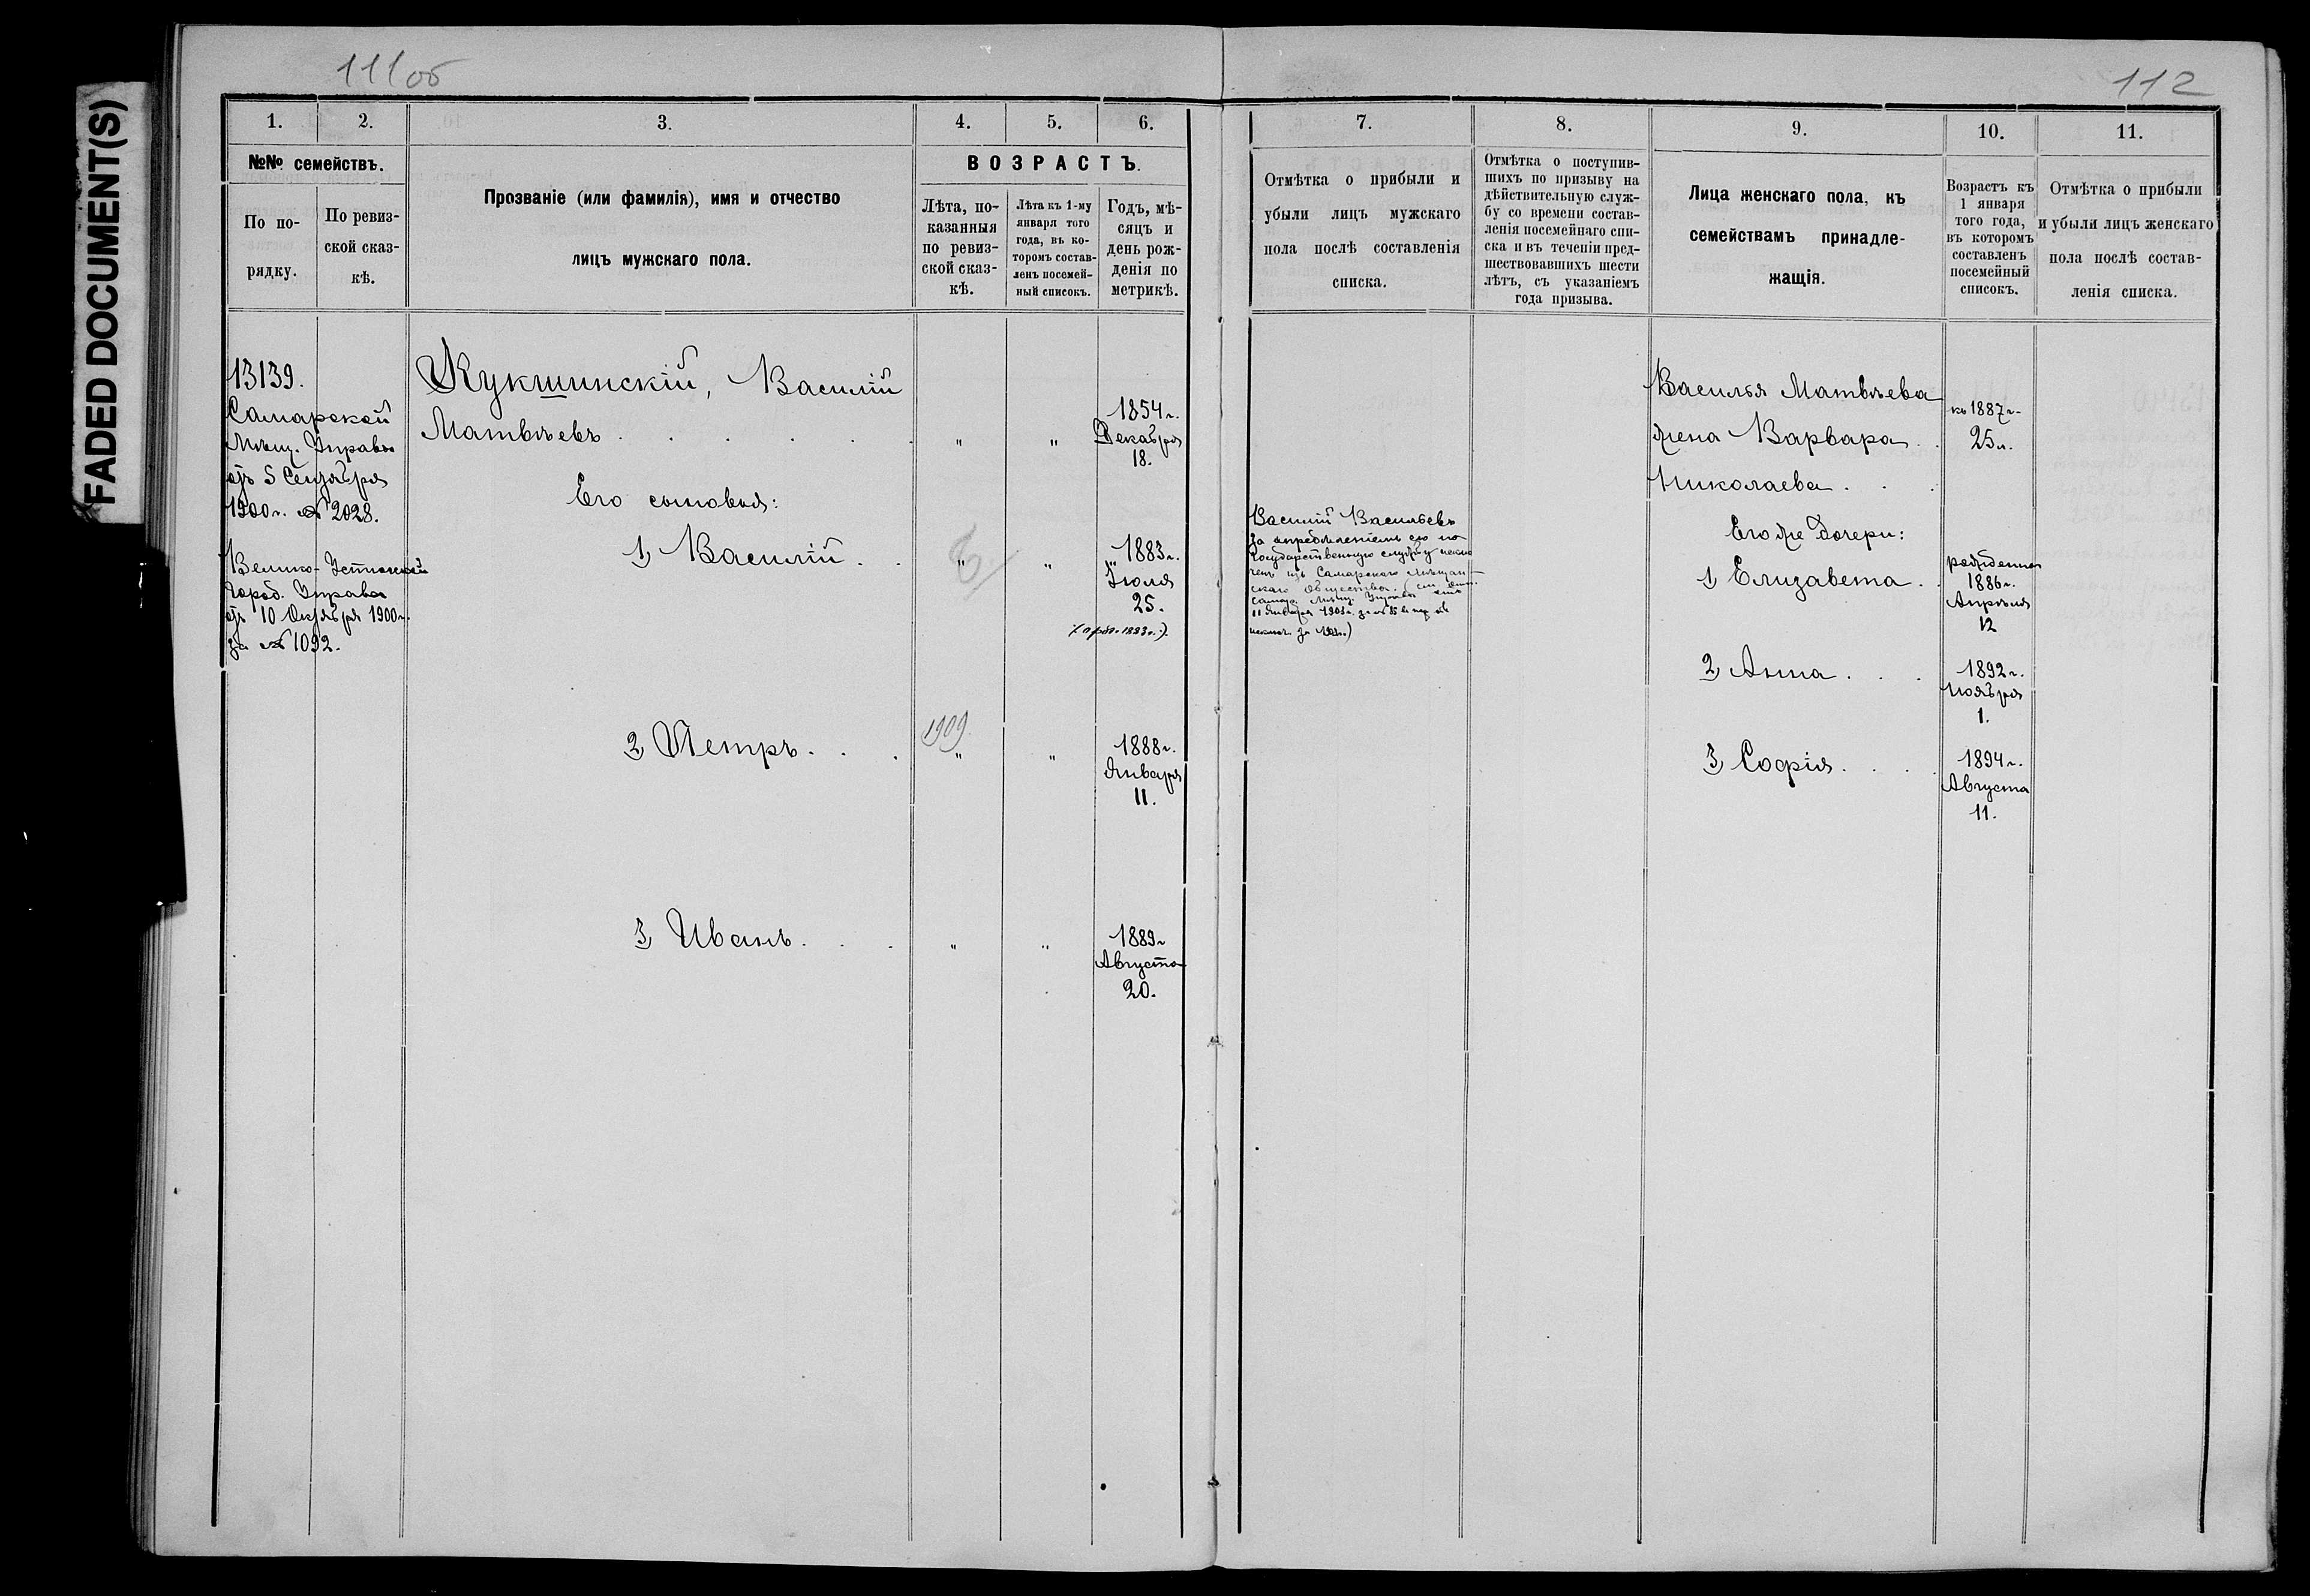 FADED DOCUMENT(S)
111об
112
1.
2.
3.
4.
5.
6.
№№ семействъ.
По по-
рядку.
По ревиз-
ской сказ-
кѣ.
Прозваніе (или фамилія), имя и отчество
лицъ мужскаго пола.
ВОЗРАСТЪ.
Лѣта, по-
казанныя
по ревиз-
ской сказ-
кѣ.
Лѣта къ 1-му
января того
года, въ ко-
торомъ состав-
ленъ посемей-
ный списокъ.
Годъ, мѣ-
сяцъ и
день рож-
денія по
метрикѣ.
7.
8.
9.
10.
11.
Отмѣтка о прибыли и
убыли лицъ мужскаго
пола послѣ составленія
списка.
Отмѣтка о поступив-
шихъ по призыву на
дѣйствительную служ-
бу со времени состав-
ленія посемейнаго спи-
ска и въ теченіи пред-
шествовавшихъ шести
лѣтъ, съ указаніемъ
года призыва.
Лица женскаго пола, къ
семействамъ принадле-
жащія.
Возрастъ къ
1 января
того года,
въ которомъ
составленъ
посемейный
списокъ.
Отмѣтка о прибыли
и убыли лицъ женскаго
пола послѣ состав-
ленія списка.
13139.
Самарской
Мѣщ. Управы
отъ 5 Сентября
1900 г. № 2028.
Велико-Устюжской
Город. Управы
отъ 10 Октября 1900 г.
за № 1092.
Кукшинскій, Василій
Матвѣевъ . . . . . " " 1854 г.
Декабря
18.
Его сыновья:
1) Василій . . " " 1883 г.
Іюля
25.
2) Петръ . . . 1909 " " 1888 г.
Января
11.
3) Иванъ . . . " " 1889 г
Августа
20.
Василій Васильевъ
за опредѣленіемъ его на
Государственную службу исклю
ченъ изъ Самарскаго Мѣщан-
скаго Общества. (
Самар. Мѣщ. Управы
11 Января 1903 г. за №
Василья Матвѣева
жена Варвара . .
Николаева . . .
къ 1887 г.
25 л.
Его же дочери:
1) Елизавета . .
рожденна
1886 г.
Апрѣля
12
2) Анна . . .
1892 г.
Ноября
1.
3) Софія . . . .
1894 г.
Августа
11.